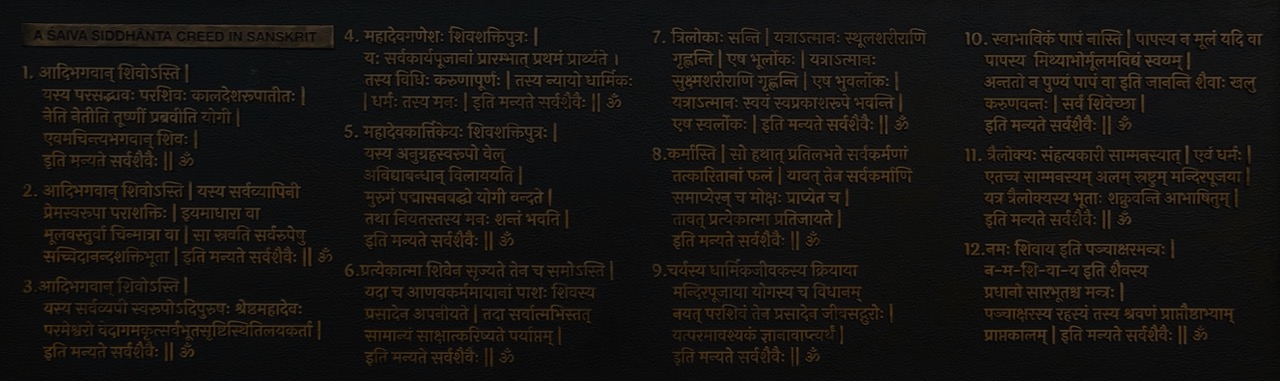 A ŚAIVA SIDDHĀNTA CREED IN SANSKRIT
1. आदिभगवान् शिवोऽस्ति |
यस्य परसद्भावः परशिवः कालदेशरुपातीतः |
नेति नेतीति तूष्णीं प्रब्रवीति योगी |
एवमचिन्त्यभगवान् शिवः |
इति मन्यते सर्वशैवैः || ॐ
2. आदिभगवान् शिवोऽस्ति | यस्य सर्वव्यापिनी
प्रेमस्वरुपा पराशक्तिः | इयमाधारा वा
मूलवस्तुर्वा चिन्मात्रा वा | सा स्रवति सर्वरुपेषु
सच्चिदानन्दशक्तिभूता | इति मन्यते सर्वशैवैः || ॐ
3. आदिभगवान् शिवोऽस्ति |
यस्य सर्वव्यपी स्वरुपोऽदिपुरुषः श्रेष्ठमहादेवः
परमेश्वरो वेदागमकृत्सर्वभूतसृष्टिस्थितिलयकर्ता |
इति मन्यते सर्वशैवैः || ॐ
4. महादेवगणेशः शिवशक्तिपुत्रः |
यः सर्वकार्यपूजानां प्रारम्भात् प्रथमं प्रार्थ्यते ।
तस्य विधिः करुणापूर्णः | तस्य न्यायो धार्मिकः
| धर्मः तस्य मनः | इति मन्यते सर्वशैवैः || ॐ
5. महादेवकार्त्तिकेयः शिवशक्तिपुत्रः |
यस्य अनुग्रहस्वरुपो वेल्
अविद्याबन्धान् विलाययति |
मुरुगं पद्मासनबद्धो योगी वन्दते |
तथा नियतस्तस्य मनः शन्तं भवति |
इति मन्यते सर्वशैवैः || ॐ
6. प्रत्येकात्मा शिवेन सृज्यते तेन च समोऽस्ति |
यदा च आणवकर्ममायानां पाशः शिवस्य
प्रसादेन अपनीयते | तदा सर्वात्मभिस्तत्
सामान्यं साक्षात्करिष्यते पर्याप्तम् |
इति मन्यते सर्वशैवैः || ॐ
7. त्रिलोकाः सन्ति | यत्राऽत्मानः स्थूलशरीराणि
गृह्णन्ति | एष भूर्लोकः | यत्राऽत्मानः
सुक्ष्मशरीराणि गृह्णन्ति | एष भुवर्लोकः |
यत्राऽत्मानः स्वयं स्वप्रकाशरुपे भवन्ति |
एष स्वर्लोकः | इति मन्यते सर्वशैवैः || ॐ
8. कर्मास्ति | सो हथात् प्रतिलभते सर्वकर्मणां
तत्कारितानां फलं | यावत् तेन सर्वकर्माणि
समाप्येरन् च मोक्षः प्राप्येत च |
तावत् प्रत्येकात्मा प्रतिजायते |
इति मन्यते सर्वशैवैः || ॐ
9. चर्यस्य धार्मिकजीवकस्य क्रियाया
मन्दिरपूजाया योगस्य च विधानम्
नयत् परशिवं तेन प्रसादेन जीवसद्गुरोः |
यत्परमावश्यकं ज्ञानावाप्त्यर्थं |
इति मन्यते सर्वशैवैः || ॐ
10. स्वाभाविकं पापं नास्ति | पापस्य न मूलं यदि वा
पापस्य मिथ्याभोर्मूलमविद्यं स्वयम् |
अन्ततो न पुण्यं पापं वा इति जानन्ति शैवाः खलु
करुणवन्तः | सर्वं शिवेच्छा |
इति मन्यते सर्वशैवैः || ॐ
11. त्रैलोक्यः संहत्यकारी साम्मनस्यात् | एवं धर्मः |
एतच्च साम्मनस्यम् अलम् स्रष्टुम् मन्दिरपूजया |
यत्र त्रैलोक्यस्य भूताः शक्नुवन्ति आभाषितुम् |
इति मन्यते सर्वशैवैः || ॐ
12. नमः शिवाय इति पञ्चाक्षरमन्त्रः |
न-म-शि-वा-य इति शैवस्य
प्रधानो सारभूतश्च मन्त्रः |
पञ्चाक्षरस्य रहस्यं तस्य श्रवणं प्राप्तौष्ठाभ्याम्
प्राप्तकालम् | इति मन्यते सर्वशैवैः || ॐ